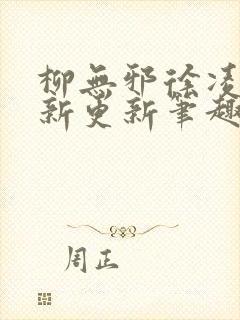 柳無邪徐凌
新更新筆趣
周正